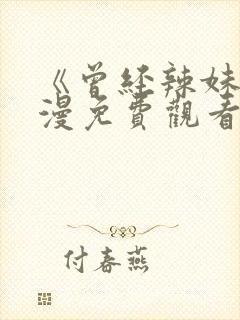 《曾经辣妹
漫免費觀看
付春燕